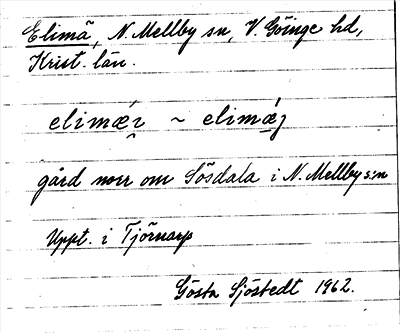 Elimä, N. Mellby sn, V. Göinge hd,
Krist. län.
elimǽi̯ ~ elimǽj
gård norr om Sösdala i N. Mellby s:n
Uppt. i Tjörnarp
Gösta Sjöstedt 1962.